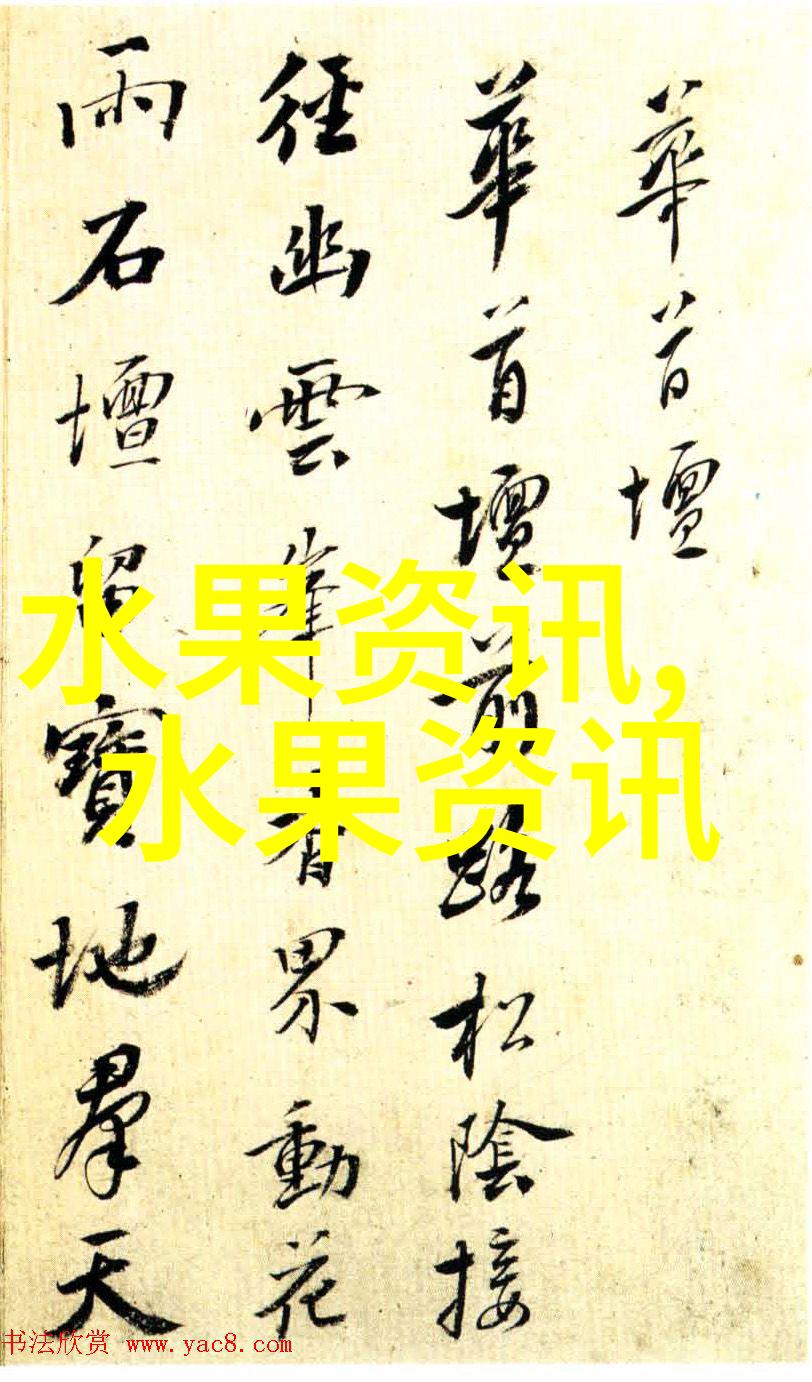 華首壇
華首壇前路松陰接
徑幽雲峰香界動花
雨石壇留寶地群天
水果资讯,
水果资讯
书法欣赏 www.yac8.com